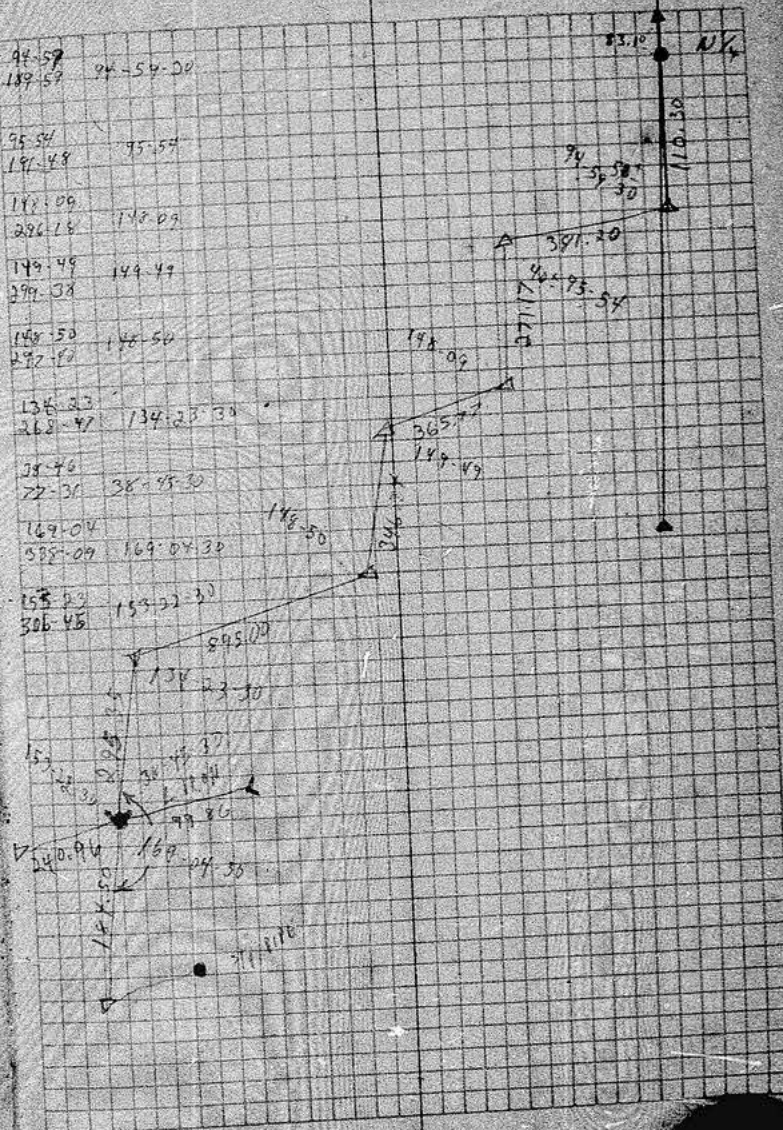 94-59
189-59 94-59-30
95-54
191-48 95-54
148-09
296-18 148-09
149-49
299-38 149-49
148-50
297-40 148-50
134-23
268-47 134-23-30
38-46
77-31 38-45-30
169-04
338-09 169-04-30
153-23
306-45 153-22-30
83.10
N 1/4
110.30
94
59
30
381.20
271.17
95-54
148-09
365.77
149-49
148-50
895.00
134
23-30
153
22-30
99.86
240.96
169
04-30
144.50